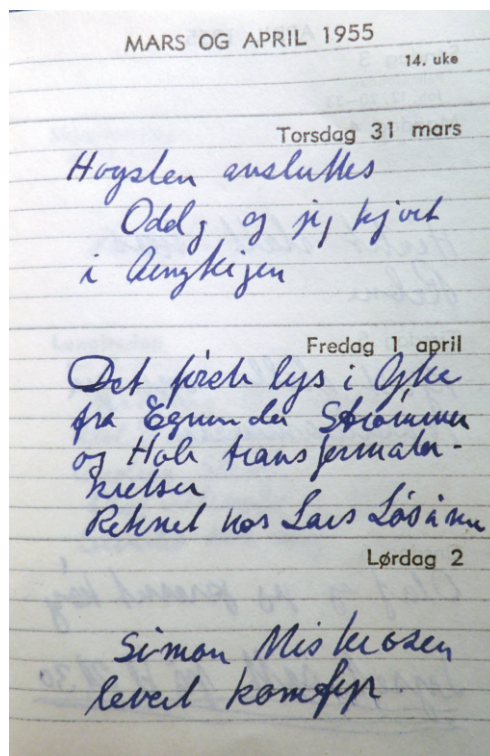 MARS OG APRIL 1955
14. uke
Torsdag 31 mars
Hogsten avsluttes
Oddg og jeg kjørt
i
Fredag 1 april
Det første lys i
fra Egnunda Strømmen
og Hole transformator-
kretser
Reknet hos Lars
Lørdag 2
Simon
levert komfyr.